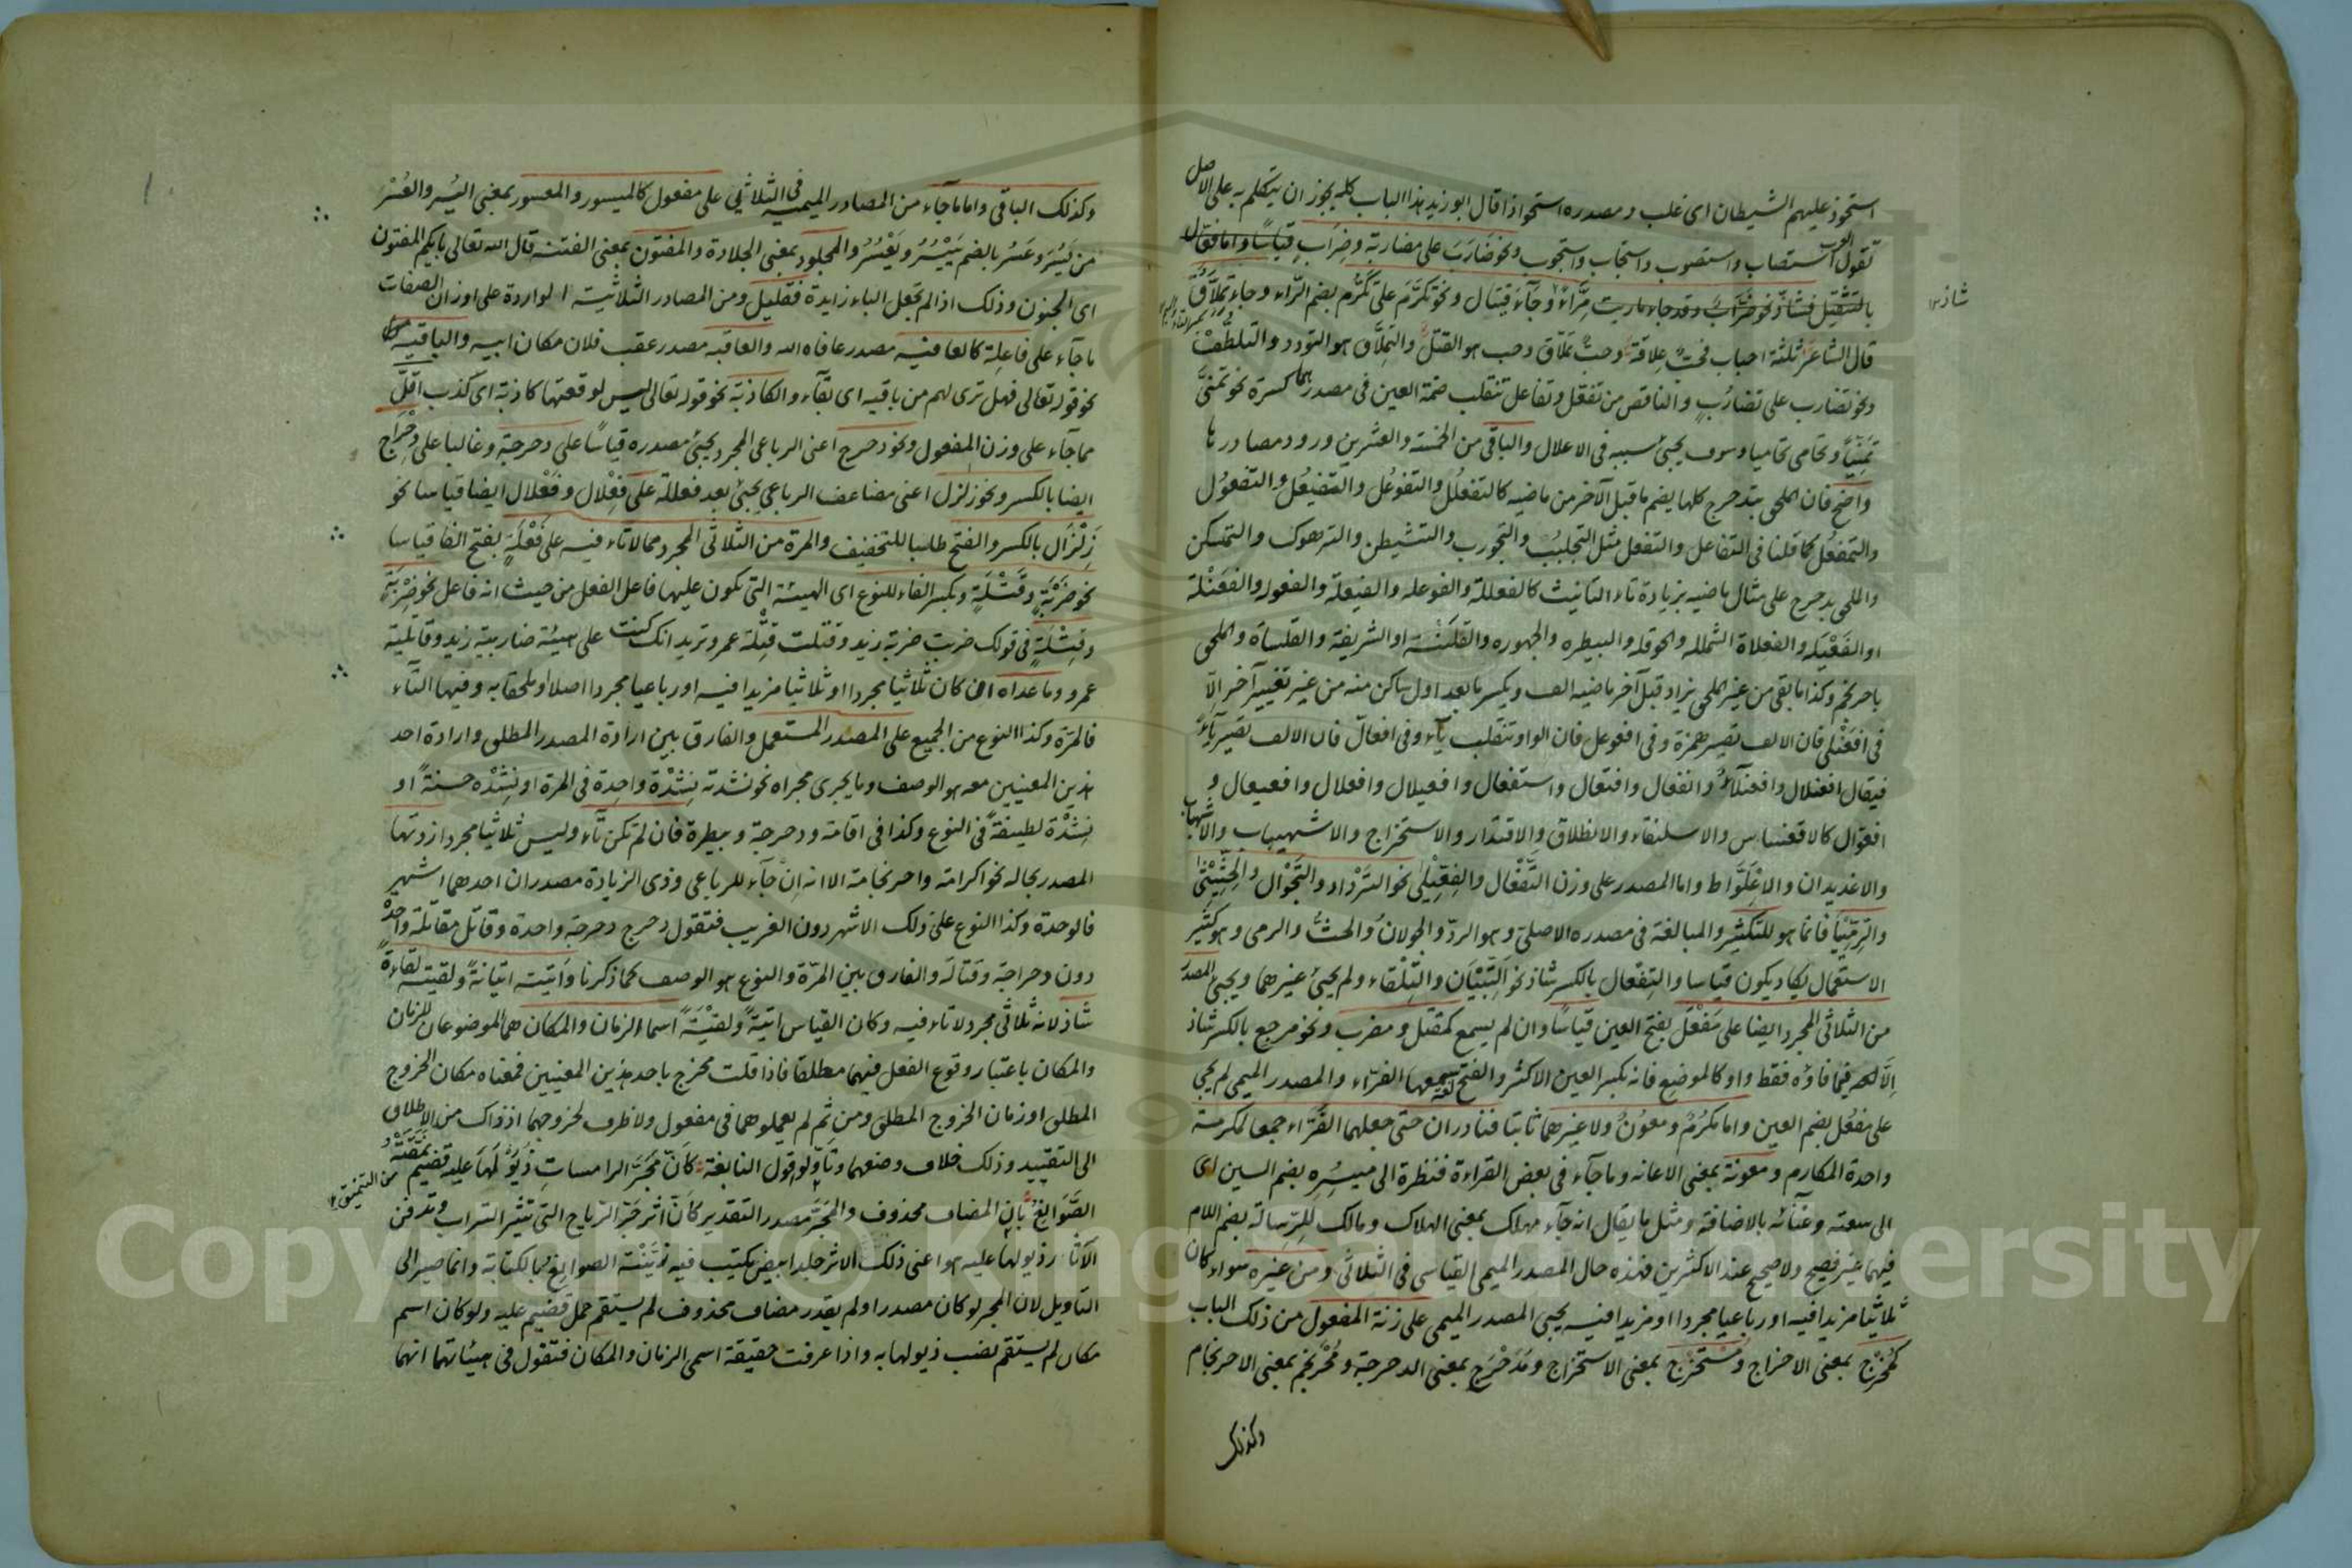 استحوذ عليهم الشيطان اى غلب ومصدره استحواذا قال ابو زيد هذا الباب كله يجوز ان يتكلم به على الاصل
تقول العرب استصاب واستصوب واستجاب واستجوب ونحو ضَارَبَ على مضاربة وضِرَابٍ قياسًا واما فِعَّال
بالتثقيل فشاذ نحو ضِرَّابٍ وقد جاء ماريت مِرَّاءً وجآءَ قيتال ونحو تكرَّمَ على تكَرُّمٍ بضم الرّاء وجاء تِمِلَّاقٌ
شاذ
قال الشاعر ثلثة احباب فحبٌّ عِلاقة وحبٌّ تِمِلّاق وحب هو القتل والتِمِلَّاق هو التودد والتلطُّف
ونحو تضارب على تضارُبٍ والناقص من تفعّل وتفاعل تنقلب ضمة العين فى مصدرهما كسرة نحو تمنَّى
تمَنِّيًا وتحامى تحاميا وسوف يجئ سببه فى الاعلال والباقى من الخمسة والعشرين ورود مصادرها
واضح فان الملحق بتدحرج كلها يضم ما قبل الآخر من ماضيه كالتفعلُل والتفوعُل والتفيعُل والتفعوُل
والتمفعُل كما قلنا فى التفاعل والتفعل مثل التجلبُب والتجورب والتشيطن والترهوك والتمسكن
والملحق بدحرج على مثال ماضيه بزيادة تاء التانيث كالفعللة والفوعله والفيعلة والفعوله والفعنْلة
او الفَعْيَله والفعلاة الشملله والحوقله والبيطره والجهوره والقلنْسَة او الشريفة والقلساة والملحق
باحرنجم وكذا ما بقى من غير الملحق يزاد قبل آخر ماضيه الف ويكسر ما بعد اول ساكن منه من غير تغيير آخر الّا
فى افعنْلى فان الالف تصير همزة وفى افعوعل فان الواو تنقلب ياء وفى افعالّ فان الالف تصير ياءً
فيقال افعنلال وافعنلاء وانفعال وافتعال واستفعال وافعيلال وافعلال وافعيعال و
افعوّال كالاقعنساس والاسلنقاء والانطلاق والاقتدار والاستخراج والاشهيباب والاشهباب
والاغديدان والاعْلِوَّاط واما المصدر على وزن التَّفْعَال والفِعِّيْلَى نحو التَّرْداد والتَّجْوَال والحِثِّيْثَى
والرِمِّيّا فانما هو للتكثير والمبالغة فى مصدره الاصلىّ وهو الردّ والجولانُ والحثُّ والرمى وهو كثير
الاستعمال يكاد يكون قياسا والتِفْعَال بالكسر شاذ نحو التِّبْيَان والتِّلْقاء ولم يجئ غيرهما ويجئ المصدر
من الثلاثى المجرد ايضا على مَفْعَل بفتح العين قياسًا وان لم يسمع كمَقتل ومضرب ونحو مرجع بالكسر شاذ
إلَّا فيما فاؤه فقط واو كالموضع فانه بكسر العين الاكثر والفتح لغة سمعها الفرّاء والمصدر الميمى لم يجئ
على مفعُل بضم العين واما مكرُمٌ ومعوُنٌ ولا غيرهما ثابتا فنادران حتى جعلهما الفَرَّاء جمعا لمكرمة
واحدة المكارم ومعونة بمعنى الاعانه وما جآء فى بعض القراءة فنظرة الى ميسُرِه بضم السين اى
الى سعته وغَنَآئه بالاضافة ومثل ما يقال انه جآء مهلك بمعنى الهلاك ومالك للرسالة بضم اللام
فيهما غير فصيح ولا صحيح عند الاكثرين فهذه حال المصدر الميمى القياسى فى الثلاثى ومن غيره سواء كان
ثلاثيا مزيدا فيه او رباعيا مجردا او مزيدا فيه يجئ المصدر الميمى على زنة المفعول من ذلك الباب
كمُخْرَجٍ بمعنى الاخراج ومُسْتَخرَج بمعنى الاستخراج ومُدَحْرَجٍ بمعنى الدحرجة ومُحْرَنجَمٍ بمعنى الاحرنجام
وكذلك
وكذلك الباقى واما ما جآء من المصادر الميمية فى الثلاثى على مفعول كالميسور والمعسور بمعنى اليُسْر والعُسْر
من يَسُرَ وعَسُرَ بالضم يَيْسُرُ ويَعْسُرُ والمجلود بمعنى الجلادة والمفتون بمعنى الفتنة قال الله تعالى بايكم المفتون
اى الجنون وذلك اذا لم تجعل الباء زايدة فقليل ومن المصادر الثلاثية الواردة على اوزان الصفات
ما جآء على فاعلة كالعافيه مصدر عافاه الله والعاقبه مصدر عقب فلان مكان ابيه والباقيه
نحو قوله تعالى فهل ترى لهم من باقيه اى بقآء والكاذبة نحو قوله تعالى ليس لوقعتها كاذبة اى كذب اقلّ
مما جآء على وزن المفعول ونحو دحرج اعنى الرباعى المجرد يجئ مصدره قياسًا على دحرجة وغالبا على دِحْرَاج
ايضا بالكسر ونحو زلزل اعنى مضاعف الرباعى يجئ بعد فعللة على فِعْلال وفَعْلال ايضا قياسا نحو
زَِلْزَال بالكسر والفتح طلبا للتخفيف والمرة من الثلاثى المجرد مما لا تاء فيه على فَعْلَةٍ بفتح الفا قياسا
نحو ضَرْبَةٍ وقَتْلَةٍ وبكسر الفاء للنوع اى الهيئة التى يكون عليها فاعل الفعل من حيث انه فاعل نحو ضِرْبَةٍ
وقِتْلَةٍ فى قولك ضربت ضربة زيد وقتلت قِتْلة عمرو تريد انك كنت على هيئة ضاربية زيد وقاتلية
عمرو وما عداه ان كان ثلاثيا مجردا او ثلاثيا مزيدا فيه او رباعيا مجردا اصلا او ملحقا به وفيها التاء
فالمرّة وكذا النوع من الجميع على المصدر المستعمل والفارق بين ارادة المصدر المطلق وارادة احد
هذين المعنيين معه هو الوصف وما يجرى مجراه نحو نشدته نِشْدَة واحدة فى المرة او نِشْدَه حسنةً او
نِشْدَة لطيفةً فى النوع وكذا فى اقامة ودحرجة وبيطرة فان لم تكن تآء وليس ثلاثيا مجردا زدتها
المصدر بحاله نحو اكرامة واحرنجامة الا انه إنْ جآء للرباعى وذى الزيادة مصدران احدهما اشهر
فالوحدة وكذا النوع على ذلك الاشهر دون الغريب فتقول دحرج دحرجة واحدة وقاتل مقاتلة واحدة
دون دحراجة وقتالة والفارق بين المرّة والنوع هو الوصف كما ذكرنا وَأتيته اتيانةً ولقيته لقاءةً
شاذ لانه ثلاثى مجرد لا تاء فيه وكان القياس اتيةً ولقيْةً اسما الزمان والمكان هما الموضوعان للزمان
والمكان باعتبار وقوع الفعل فيهما مطلقا فاذا قلت مخرج باحد هذين المعنيين فمعناه مكان الخروج
المطلق او زمان الخروج المطلق ومن ثَم لم يعملوهما فى مفعول ولا ظرف لخروجهما اذ ذاك من الاطلاق
الى التقييد وذلك خلاف وضعهما وتأوّلوا قول النابغة كَأَنَّ مَجَرَّ الرامساتِ ذُيُوْلَهَا عليه قضيم نمّقَتْهُ
من التنميق
الصَّوَانِعُ بأن المضاف محذوف والمجَرّ مصدر التقدير كأنّ اثر جَرّ الرياح التى تثير التراب وتدفن
الآثار ذيولها عليه هو اعنى ذلك الاثر جلد ابيض يكتب فيه زَيَّنَتْه الصوانع بالكتابة وانما صير الى
التاويل لان المجر لو كان مصدرا ولم يقدر مضاف محذوف لم يستقم حمل قضيم عليه ولو كان اسم
مكان لم يستقم نصب ذيولها به واذا عرفت حقيقة اسمى الزمان والمكان فتقول فى هيئاتهما انهما
Copyright © King Saud University